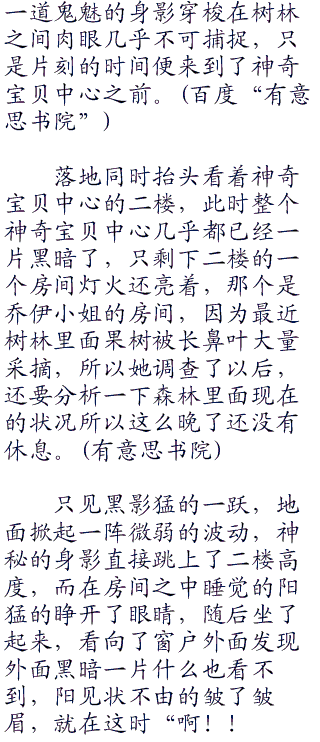 一道鬼魅的身影穿梭在树林
之间肉眼几乎不可捕捉，只
是片刻的时间便来到了神奇
宝贝中心之前。(百度“有意
思书院”)
落地同时抬头看着神奇
宝贝中心的二楼，此时整个
神奇宝贝中心几乎都已经一
片黑暗了，只剩下二楼的一
个房间灯火还亮着，那个是
乔伊小姐的房间，因为最近
树林里面果树被长鼻叶大量
采摘，所以她调查了以后，
还要分析一下森林里面现在
的状况所以这么晚了还没有
休息。(有意思书院)
只见黑影猛的一跃，地
面掀起一阵微弱的波动，神
秘的身影直接跳上了二楼高
度，而在房间之中睡觉的阳
猛的睁开了眼睛，随后坐了
起来，看向了窗户外面发现
外面黑暗一片什么也看不
到，阳见状不由的皱了皱
眉，就在这时“啊！！